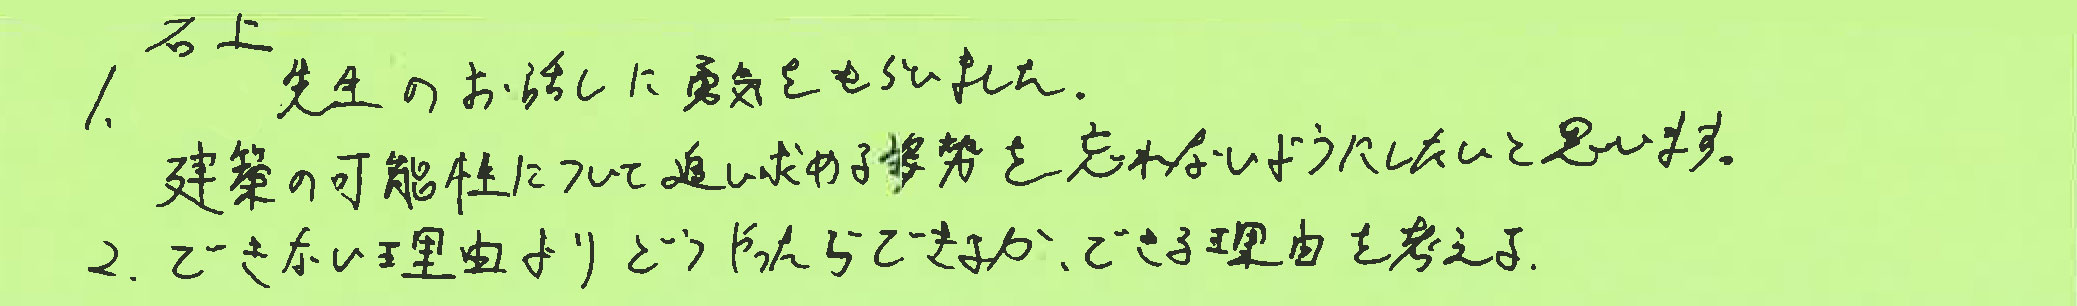 石上
1. 先生のお話しに勇気をもらいました。
建築の可能性について追い求める姿勢を忘れないようにしたいと思います。
2. できない理由よりどうやったらできるか、できる理由を考える。